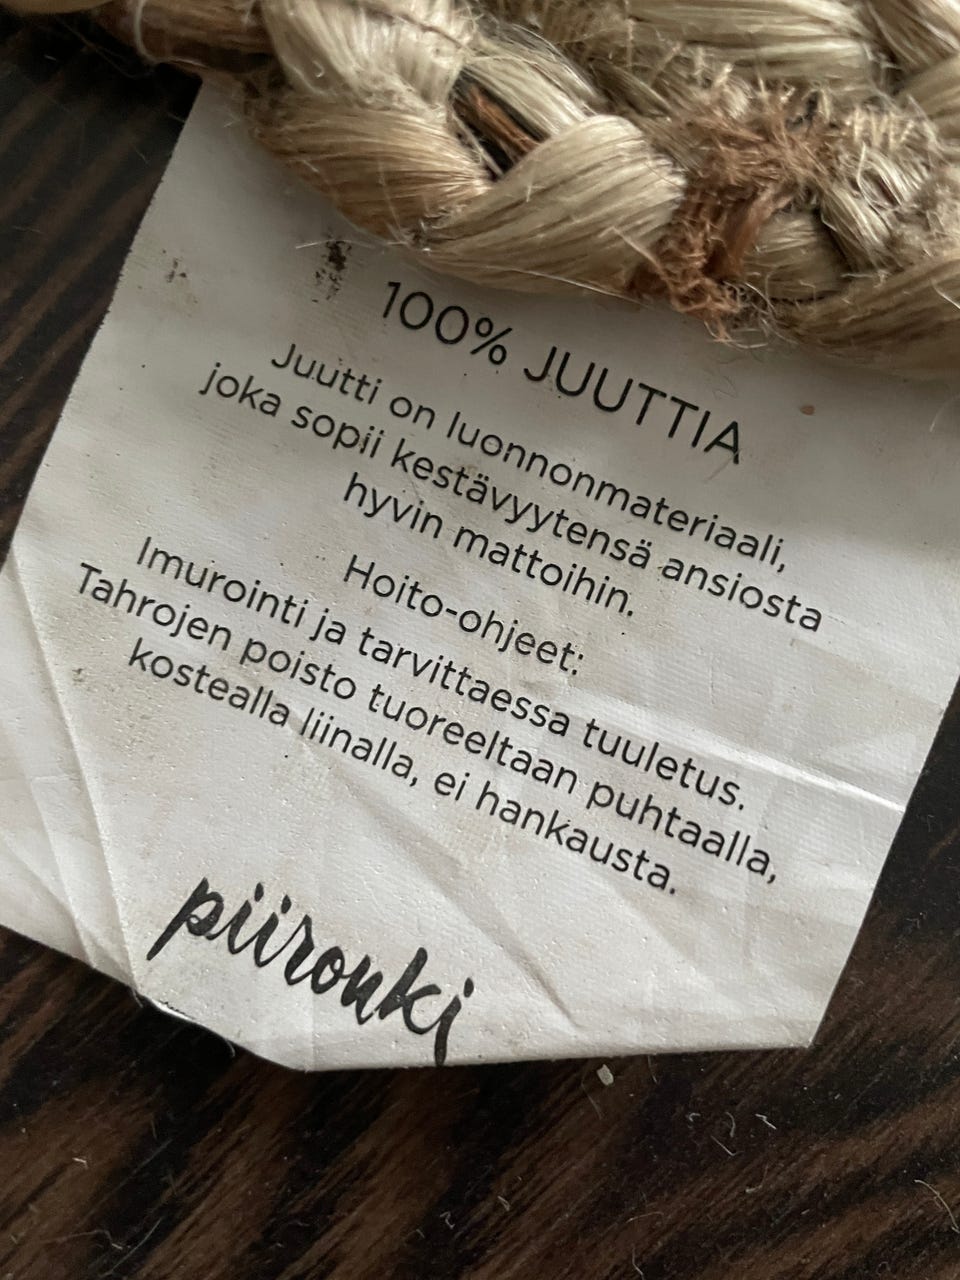 100% JUUTTIA
Juutti on luonnonmateriaali,
joka sopii kestävyytensä ansiosta
hyvin mattoihin.
Hoito-ohjeet:
Imurointi ja tarvittaessa tuuletus.
Tahrojen poisto tuoreeltaan puhtaalla,
kostealla liinalla, ei hankausta.
piironki